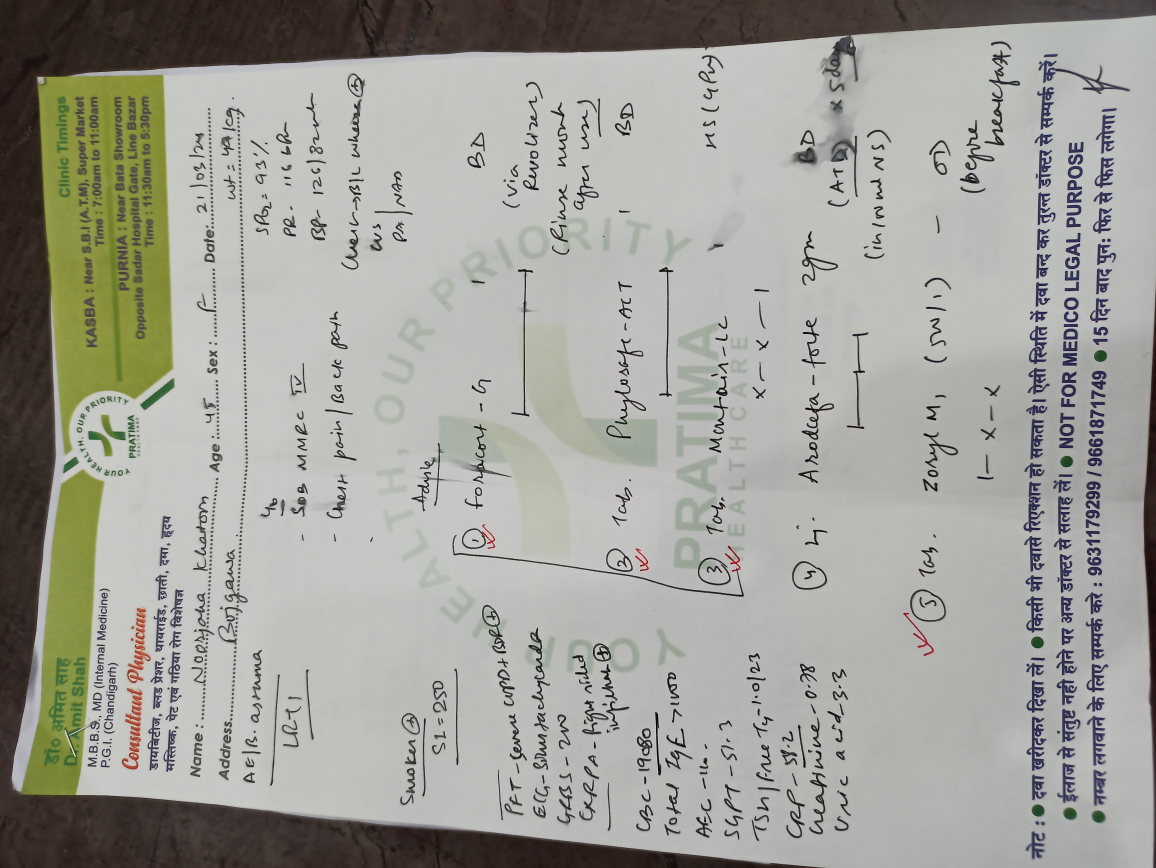 डॉ० अमित साह
Dr. Amit Shah
M.B.B.S., MD (Internal Medicine)
P.G.I. (Chandigarh)
Consultant Physician
डायबिटीज, ब्लड प्रेशर, थायराईड, छाती, दमा, हृदय
मस्तिष्क, पेट एवं गठिया रोग विशेषज्ञ
YOUR HEALTH, OUR PRIORITY
PRATIMA
HEALTHCARE
Clinic Timings
KASBA : Near S.B.I (A.T.M), Super Market
Time : 7:00am to 11:00am
PURNIA : Near Bata Showroom
Opposite Sadar Hospital Gate, Line Bazar
Time : 11:30am to 5:30pm
Name : Noorjaha Khatom Age : 45 Sex : F Date: 21/03/24
Address wt = 49 kg.
B. asthma
LRTI
Smoker (+)
SI = 250
PFT - severe COPD + BDR (+)
ECG - Sinus tachycardia
GRBS - 200
CXRPA - Right sided
(+)
CBC - 19080
Total IgE > 1100
AEC - 110.
SGPT - 51.3
TSH / Free T4 - 1.0/23
CRP - 58.2
Creatinine - 0.78
Uric acid - 3.3
c/o
- SOB MMRC IV
- Chest pain / Back pain
SPO2 = 93%
PR - 116 bpm
BP - 126/82
Chest - B/L wheeze (+)
CVS
PA / NAD
Advice
① Foracort - G 1 BD
(via
Revolizer)
(Rinse mouth
after use)
② Tab. Phylosafe - ACT 1 BD
③ Tab. Montair - LC 1 HS
x — x — 1
④ Inj. - forte 2gm BD
x 5 days
(in 100ml NS)
⑤ Tab. Zoryl M1 (5W/1) - OD
(before
breakfast)
1 - x - x
नोट : ● दवा खरीदकर दिखा लें। ● किसी भी दवासे रिएक्शन हो सकता है। ऐसी स्थिति में दवा बन्द कर तुरन्त डॉक्टर से सम्पर्क करें।
● ईलाज से संतुष्ट नही होने पर अन्य डॉक्टर से सलाह लें। ● NOT FOR MEDICO LEGAL PURPOSE
● नम्बर लगवाने के लिए सम्पर्क करे : 9631179299 / 9661871749 ● 15 दिन बाद पुन: फिर से फिस लगेगा।